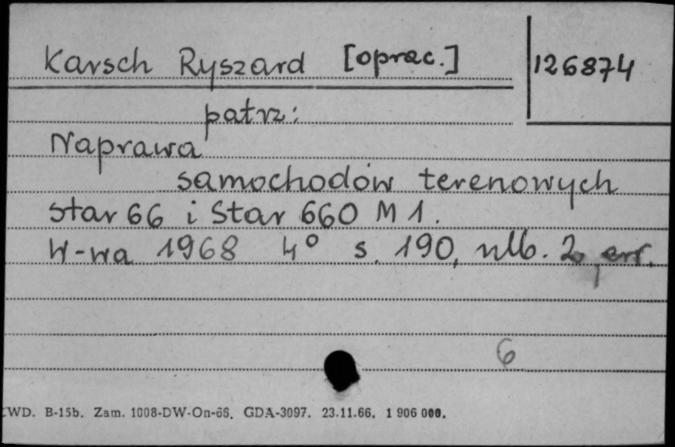 Karsch Ryszard [oprac.]
126874
patrz:
Naprawa
samochodów terenowych
Star 66 i Star 660 M1.
W-wa 1968 4° s. 190, nlb. 2, err.
6
WD. B-15b. Zam. 1008-DW-On-66. GDA-3097. 23.11.66. 1 906 000.